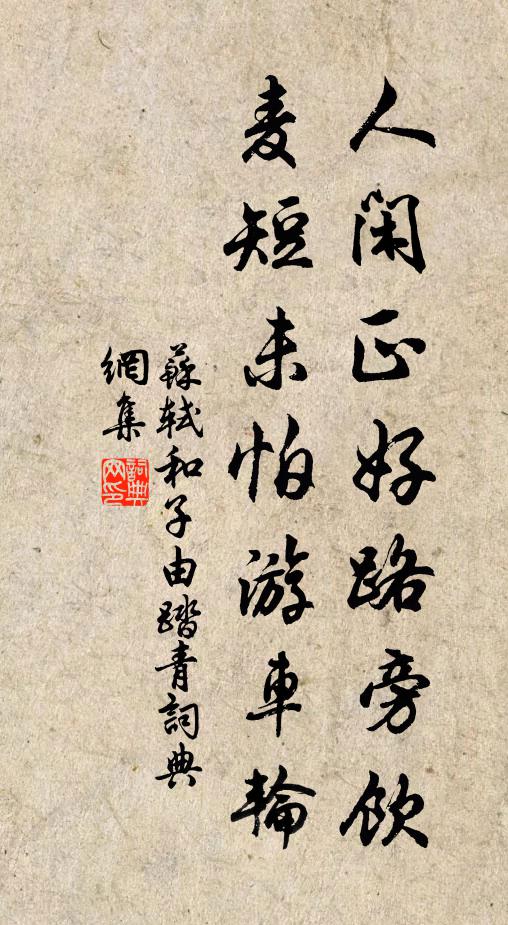 人閑正好路旁飲
麦短未怕游車輪
蘇軾和子由踏青詞典
網集
詞典
网印